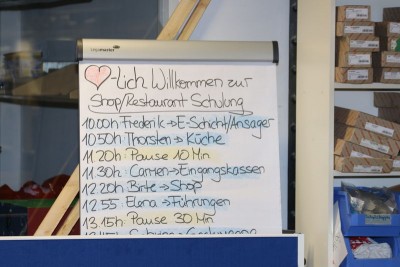 ♡-lich Willkommen zur
Shop/Restaurant Schulung
10.00h: Frederik→E-Schicht/Ansager
10.50h: Thorsten→Küche
11.20h: Pause 10 Min
11.30h: Carmen→Eingangskassen
12.20h: Birte→Shop
12.55: Elena→Führungen
13.15h: Pause 30 Min